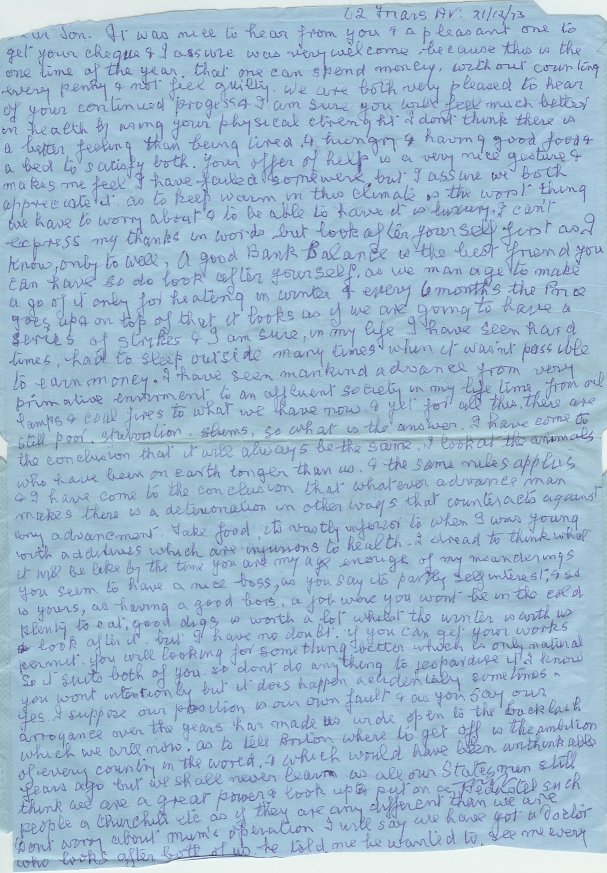 62 Friars Av. 21/12/73
Dear Son. It was nice to hear from you & a pleasant one to
get your cheque & I assure was very welcome because this is the
one time of the year that one can spend money without counting
every penny & not feel guilty. We are both very pleased to hear
of your continued progress & I am sure you will feel much better
in health by using your physical strenght I dont think there is
a better feeling than being tired & hungry & having good food &
a bed to satisfy both. Your offer of help is a very nice gesture &
makes me feel I have failed somewere, but I assure we both
appreciate it as to keep warm in this climate is the worst thing
we have to worry about & to be able to have it is luxury, I can't
express my thanks in words but look after yourself first as I
know, only to well, A good Bank Balance is the best friend you
can have so do look after yourself, as we manage to make
a go of it only for heating in winter & every 6 months the Price
goes up & on top of that it looks as if we are going to have a
series of strikes & I am sure, in my life I have seen hard
times, had to sleep outside many times when it wasn't possible
to earn money. I have seen mankind advance from very
primative enviroment to an affluent society in my life time, from oil
lamps & coal fires to what we have now. & yet for all this, there are
still poor, starvation, slums, so what is the answer. I have come to
the conclusion that it will always be the same. I look at the animals
who have been on earth longer than us. & the same rules applies
& I have come to the conclusion that whatever advance man
makes there is a deterioration in other ways that counteracts against
any advancement. Take food, its vastly inferior to when I was young
with additives which are injurious to health. I dread to think what
it will be like by the time you are my age enough of my meanderings
You seem to have a nice boss, as you say its partly self interest, & so
is yours, as having a good boss, a job were you wont be in the cold
plenty to eat, good digs is worth a lot whilst the winter is with us
so look after it, but I have no doubt, if you can get your works
permit you will looking for something better which is only natural
So it suits both of you so dont do anything to jeopardise it, I know
you wont intentionly but it does happen accidentaly sometimes.
Yes I suppose our position is our own fault & as you say our
arrogance over the years has made us wide open to the backlash
which we will now, as to tell Briton where to get off is the ambition
of every country in the world, & which would have been unthinkable
years ago but we shall never learn as all our Statesmen still
think we are a great power & look up & put on a Pedestel such
people a Churchill etc as if they are any different than we are
Dont worry about mum's operation I will say we have got a doctor
who looks after both of us he told me he wanted to see me every